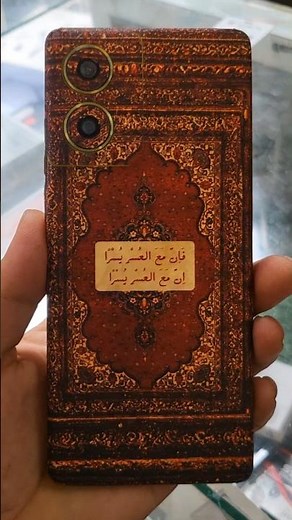 فَإِنَّ مَعَ العُسْرِ يُسْرًا
إِنَّ مَعَ العُسْرِ يُسْرًا